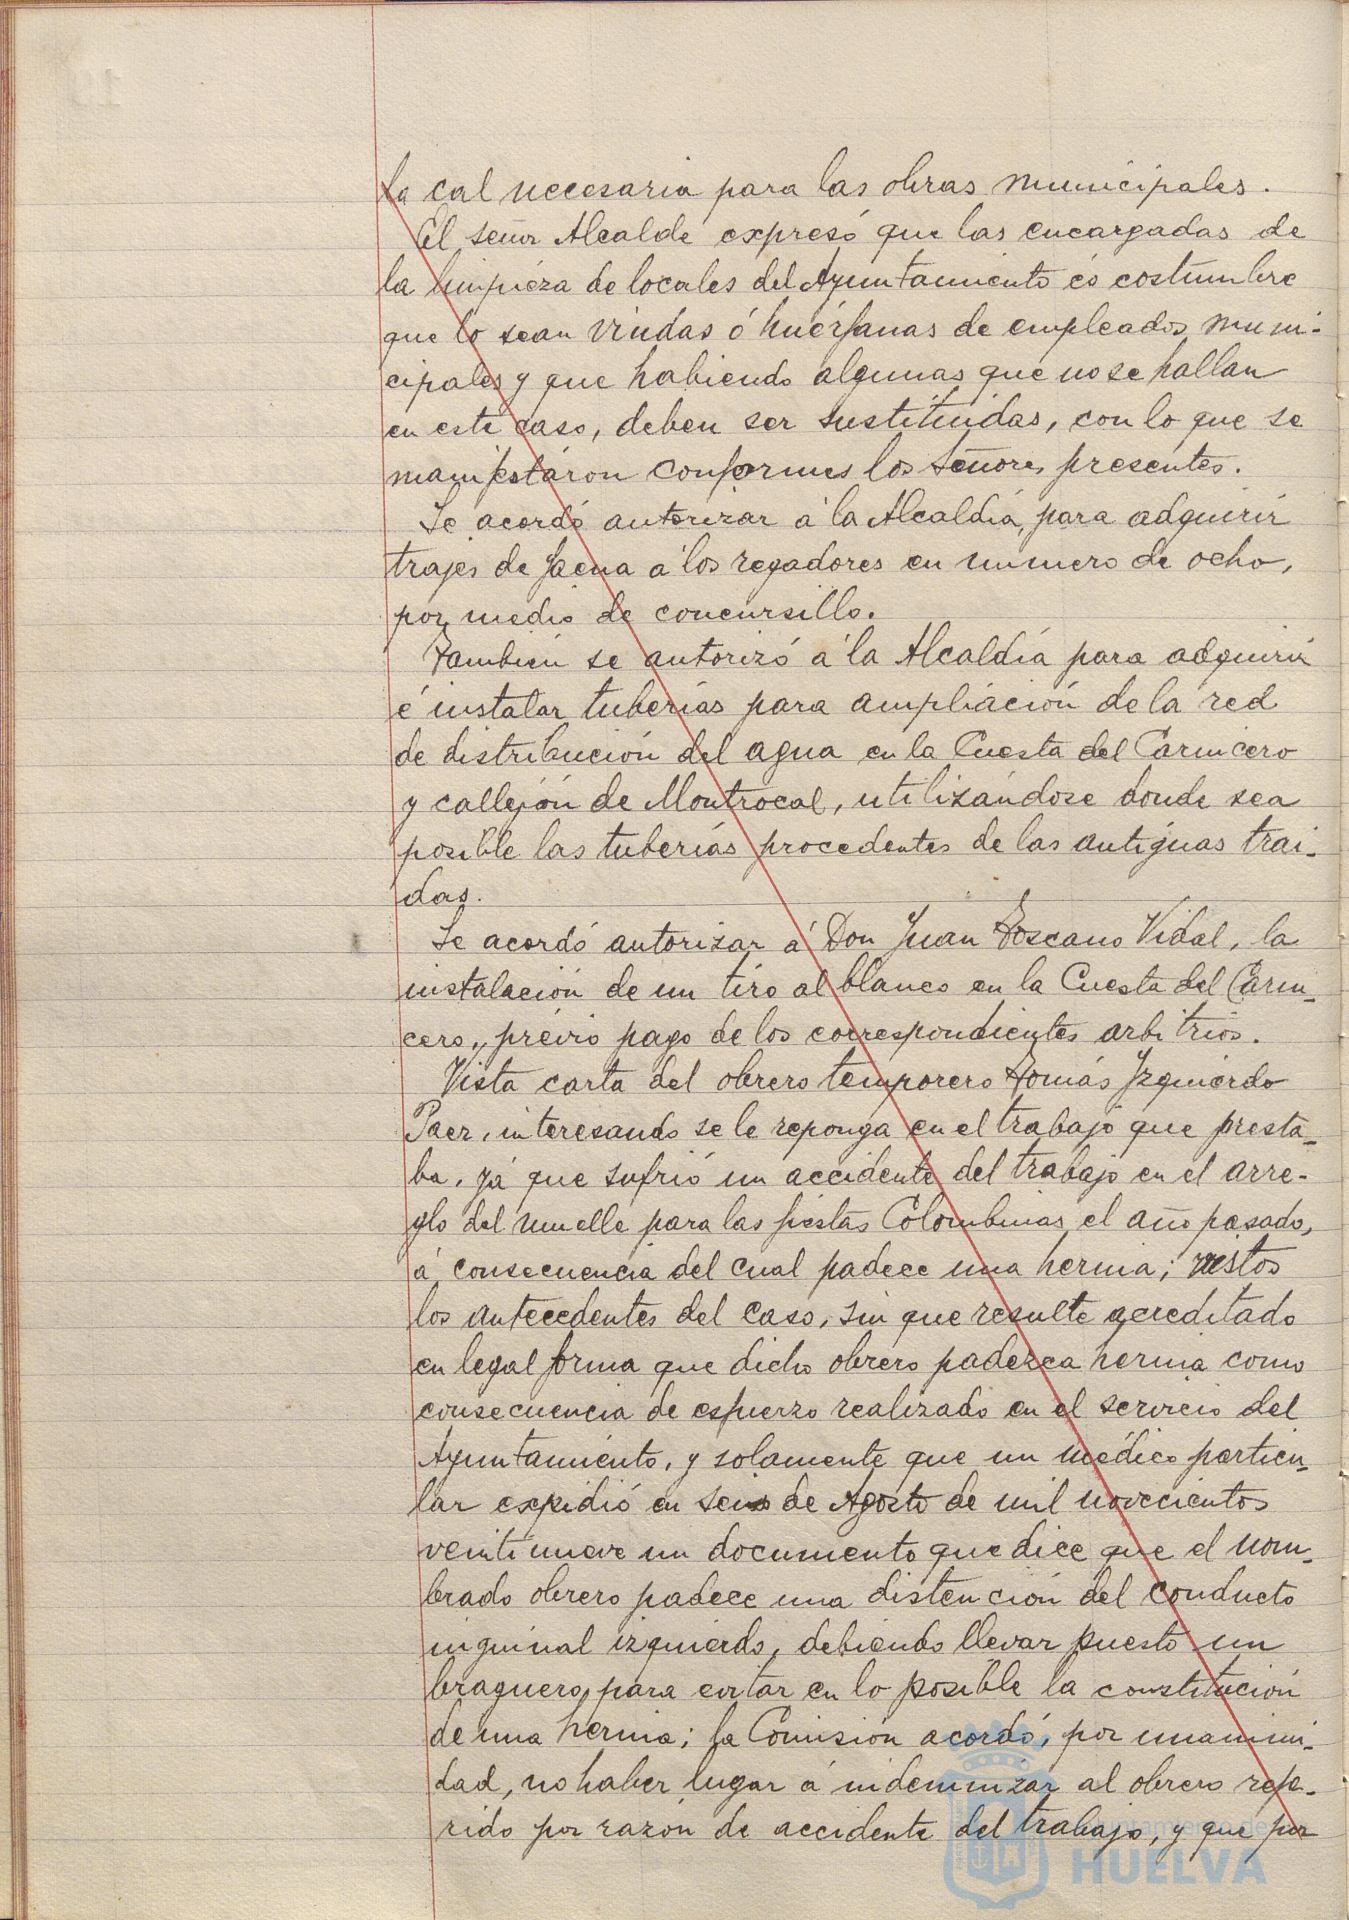 la cal necesaria para las obras municipales.
El señor Alcalde expresó que las encargadas de
la limpieza de locales del Ayuntamiento és costumbre
que lo sean viudas ó huérfanas de empleados muni-
cipales y que habiendo algunas que no se hallan
en este caso, deben ser sustituidas, con lo que se
manifestaron conformes los señores presentes.
Se acordó autorizar á la Alcaldía, para adquirir
trajes de faena a los regadores en numero de ocho,
por medio de concursillo.
También se autorizó á la Alcaldía para adquirir
é instalar tuberías para ampliación de la red
de distribución del agua en la Cuesta del Carnicero
y callejón de Montrocal, utilizándose donde sea
posible las tuberías procedentes de las antiguas trai-
das.
Se acordó autorizar á Don Juan Toscano Vidal, la
instalación de un tiro al blanco en la Cuesta del Carni-
cero, prévio pago de los correspondientes arbitrios.
Vista carta del obrero temporero Tomás Izquierdo
Paez, interesando se le reponga en el trabajo que presta-
ba, yá que sufrió un accidente del trabajo en el arre-
glo del muelle para las fiestas Colombinas el año pasado,
á consecuencia del cual padece una hernia; vistos
los antecedentes del caso, sin que resulte acreditado
en legal forma que dicho obrero padezca hernia como
consecuencia de esfuerzo realizado en el servicio del
Ayuntamiento, y solamente que un médico particu-
lar expidió en seis de Agosto de mil novecientos
veintinueve un documento que dice que el nom-
brado obrero padece una distención del conducto
inguinal izquierdo, debiendo llevar puesto un
braguero para evitar en lo posible la constitución
de una hernia; la Comisión acordó, por unanimi-
dad, no haber lugar á indemnizar al obrero refe-
rido por razón de accidente del trabajo, y que por
Ayuntamiento de
HUELVA